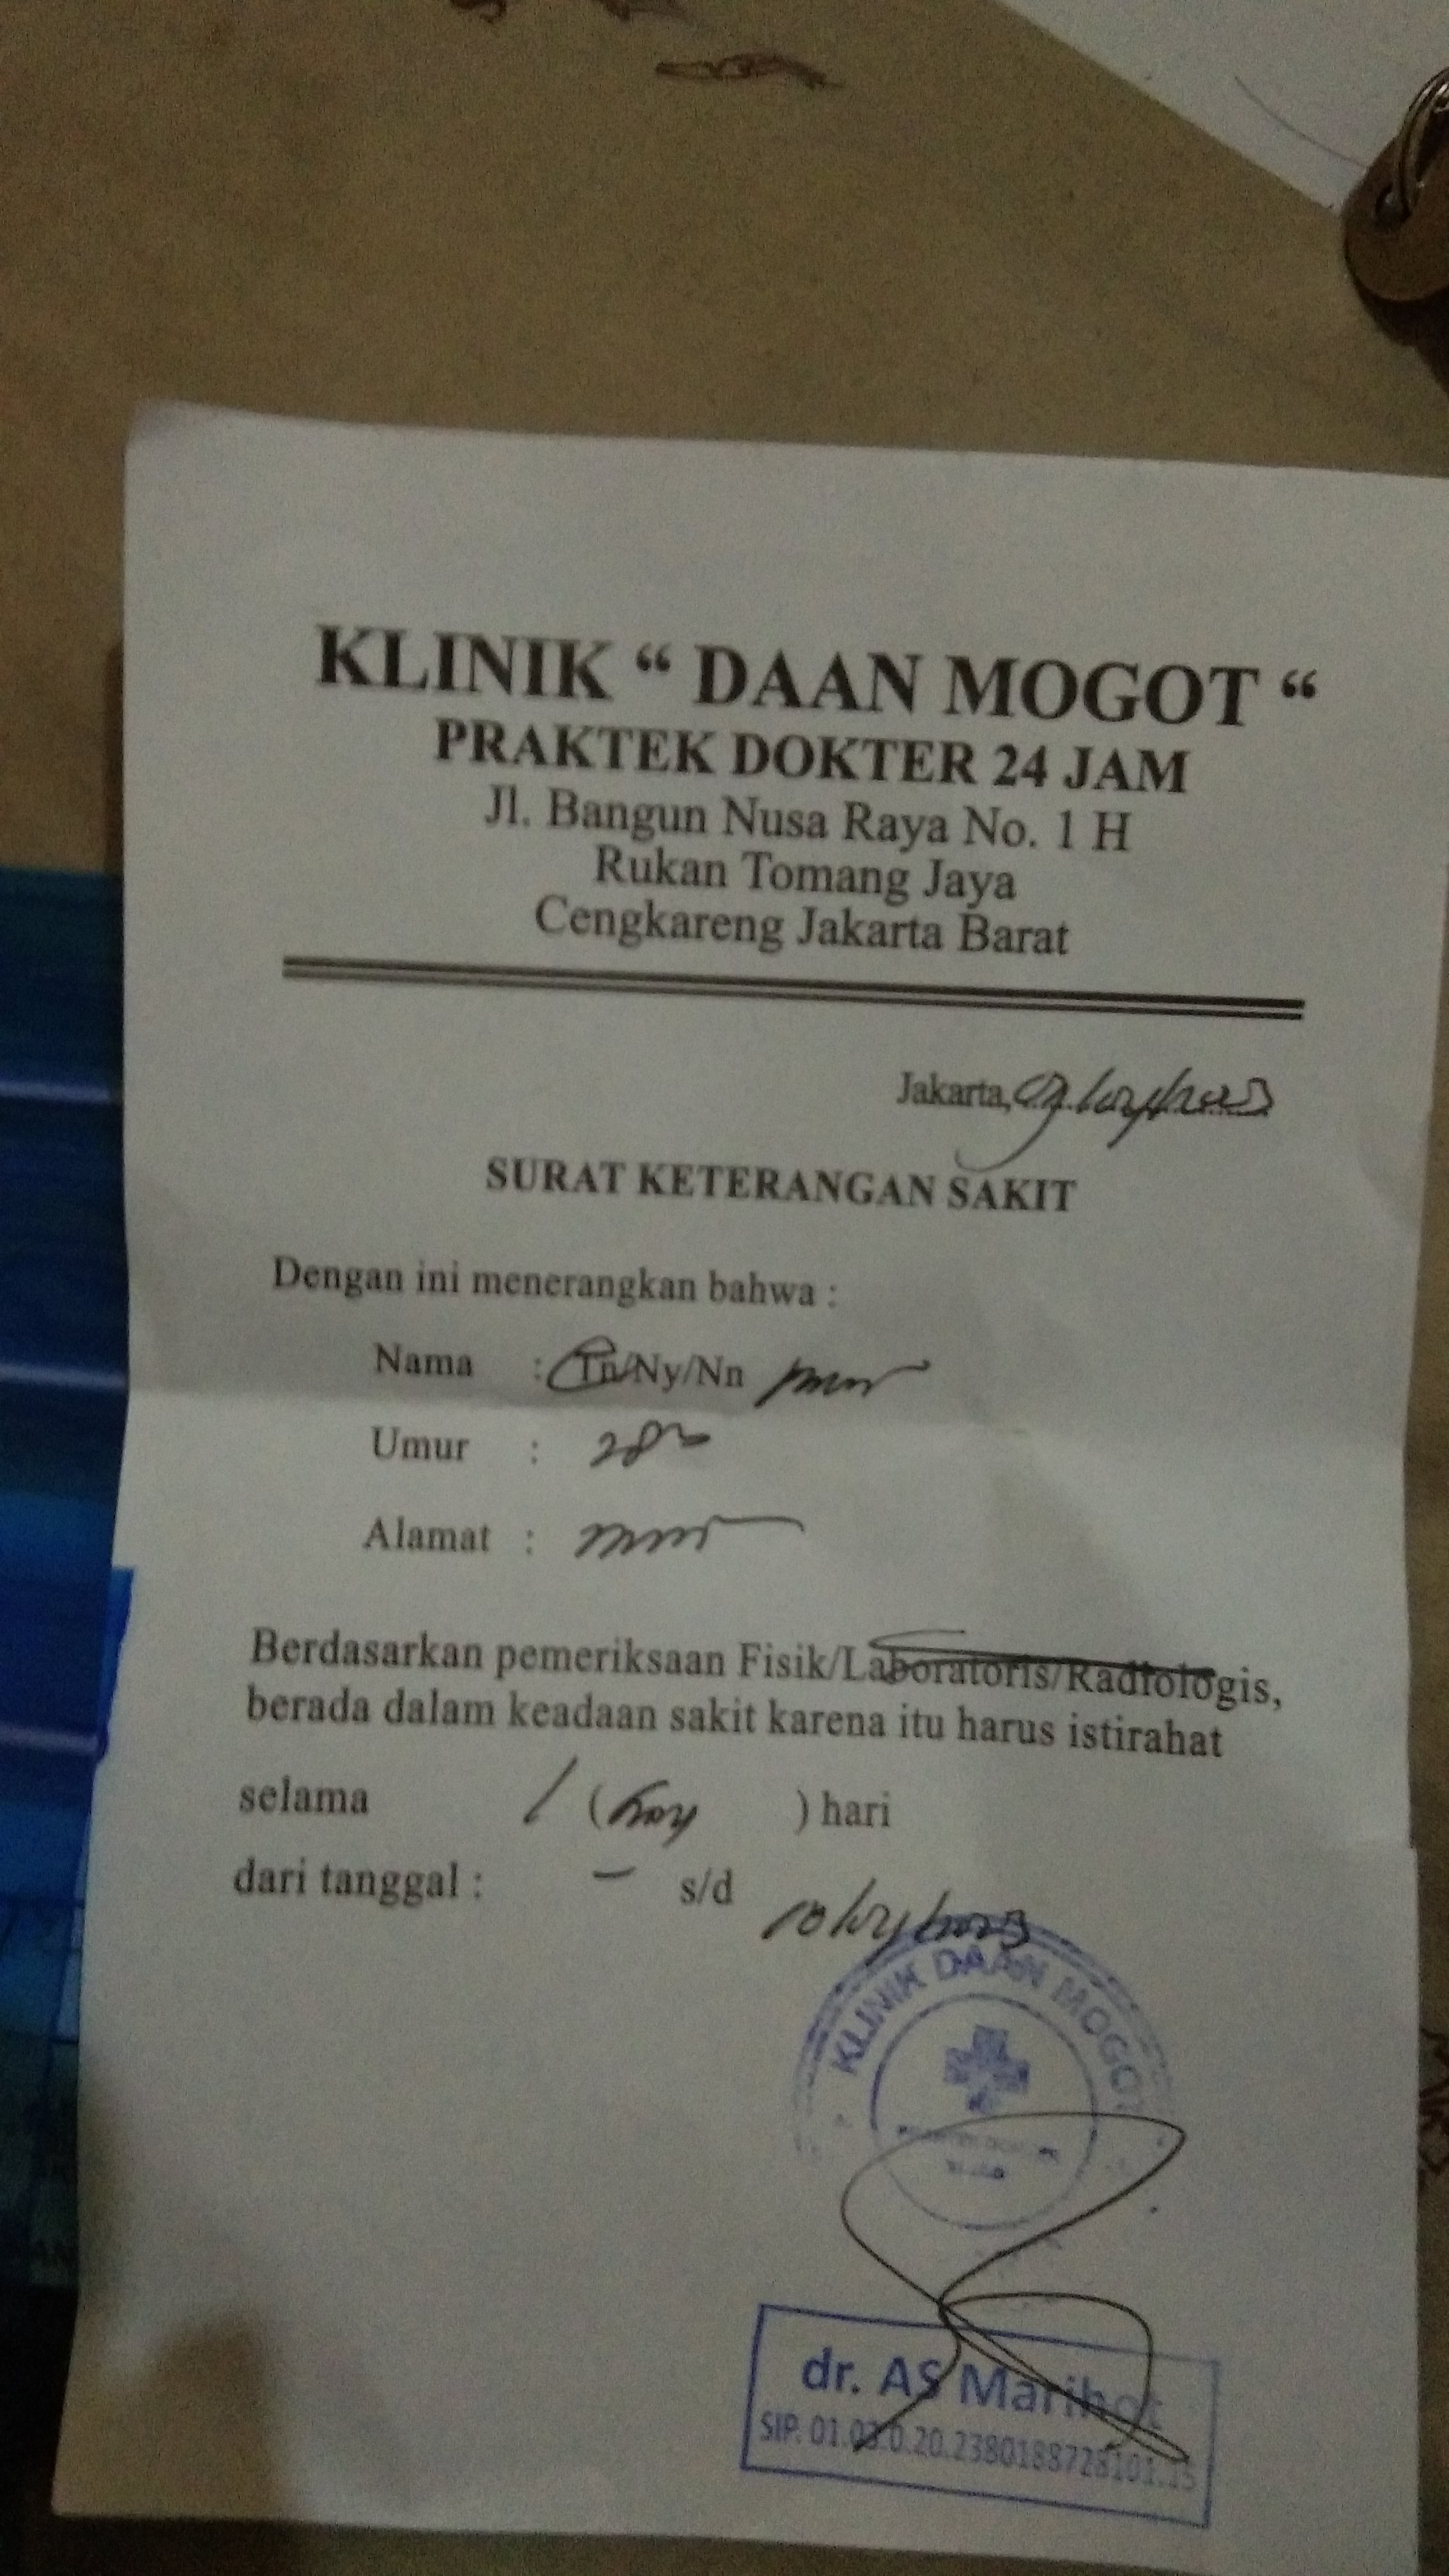 KLINIK “ DAAN MOGOT “
PRAKTEK DOKTER 24 JAM
Jl. Bangun Nusa Raya No. 1 H
Rukan Tomang Jaya
Cengkareng Jakarta Barat
Jakarta,
SURAT KETERANGAN SAKIT
Dengan ini menerangkan bahwa :
Nama : Tn/Ny/Nn
Umur :
Alamat :
Berdasarkan pemeriksaan Fisik/Laboratoris/Radiologis,
berada dalam keadaan sakit karena itu harus istirahat
selama 1 ( ) hari
dari tanggal : - s/d
KLINIK DAAN MOGOT
dr. AS Marihot
SIP. 01.03.0.20.2380188728101.15